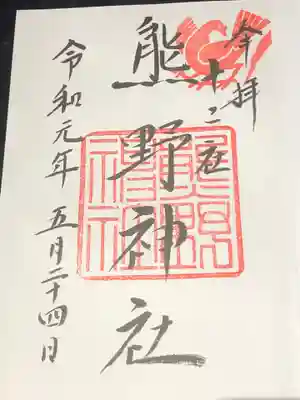 奉拝
十二社
熊野神社
令和元年 五月二十四日
熊野神社